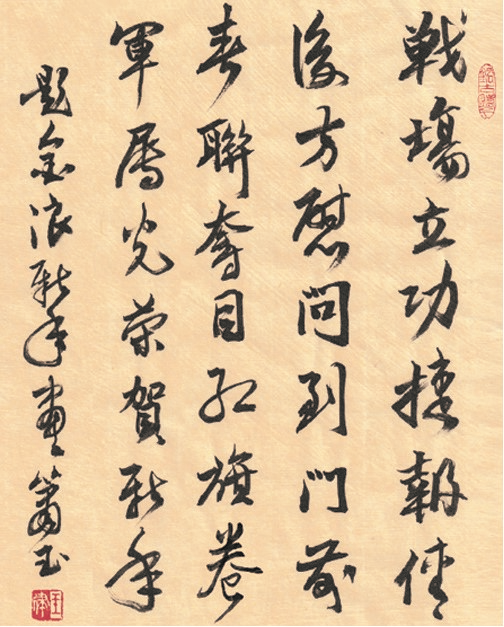 戦塲立功捷報傳
後方慰問到門前
春聯奪目紅旗卷
軍属光荣賀新年
題金浪新年畫簫玉